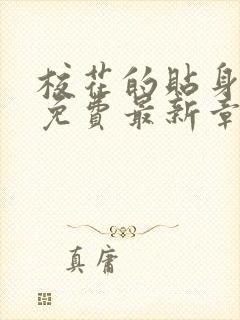 校花的貼身
免費最新章
真庸